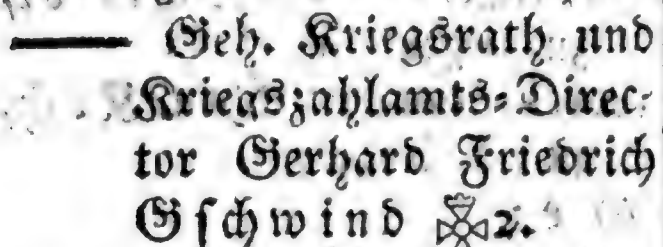 —— Geh. Kriegsrath und
Kriegszahlamts-Direc-
tor Gerhard Friedrich
Gschwind 2.